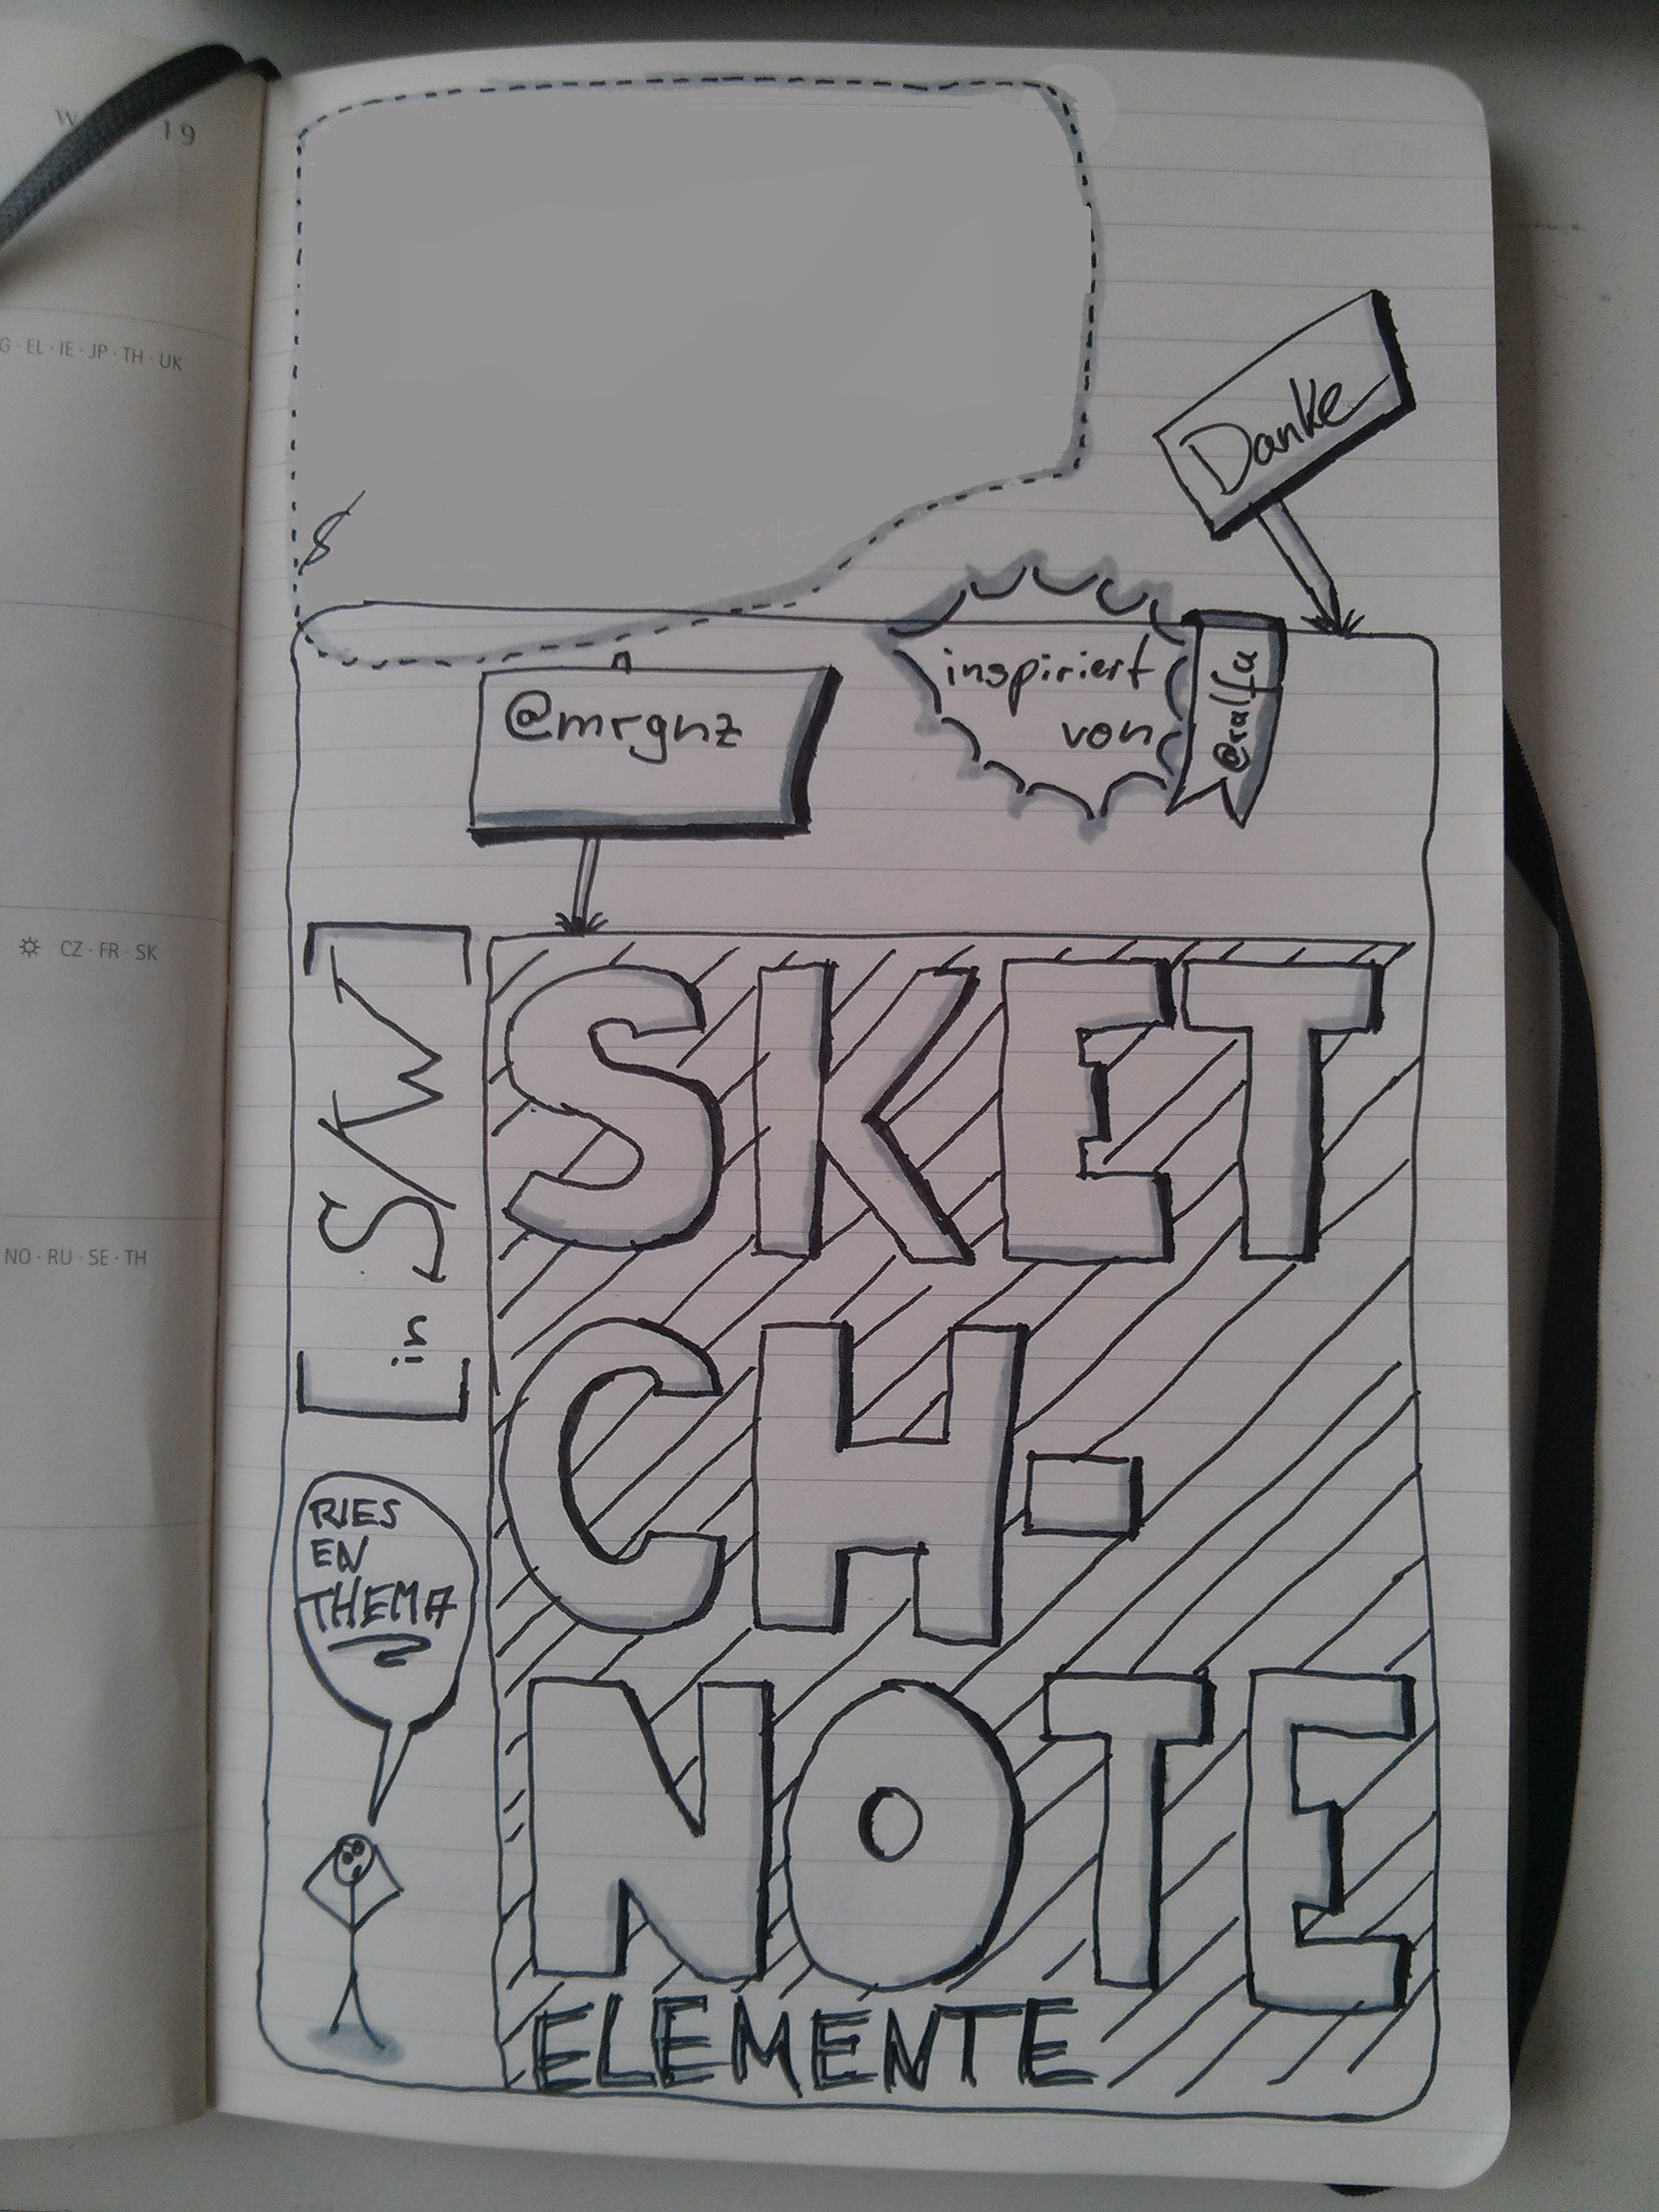 19
EL · IE · JP · TH · UK
CZ · FR · SK
NO · RU · SE · TH
Danke
inspiriert
von
@ralfa
@mrgnz
[in S/W]
SKET
CH-
NOTE
ELEMENTE
RIES
EN
THEMA